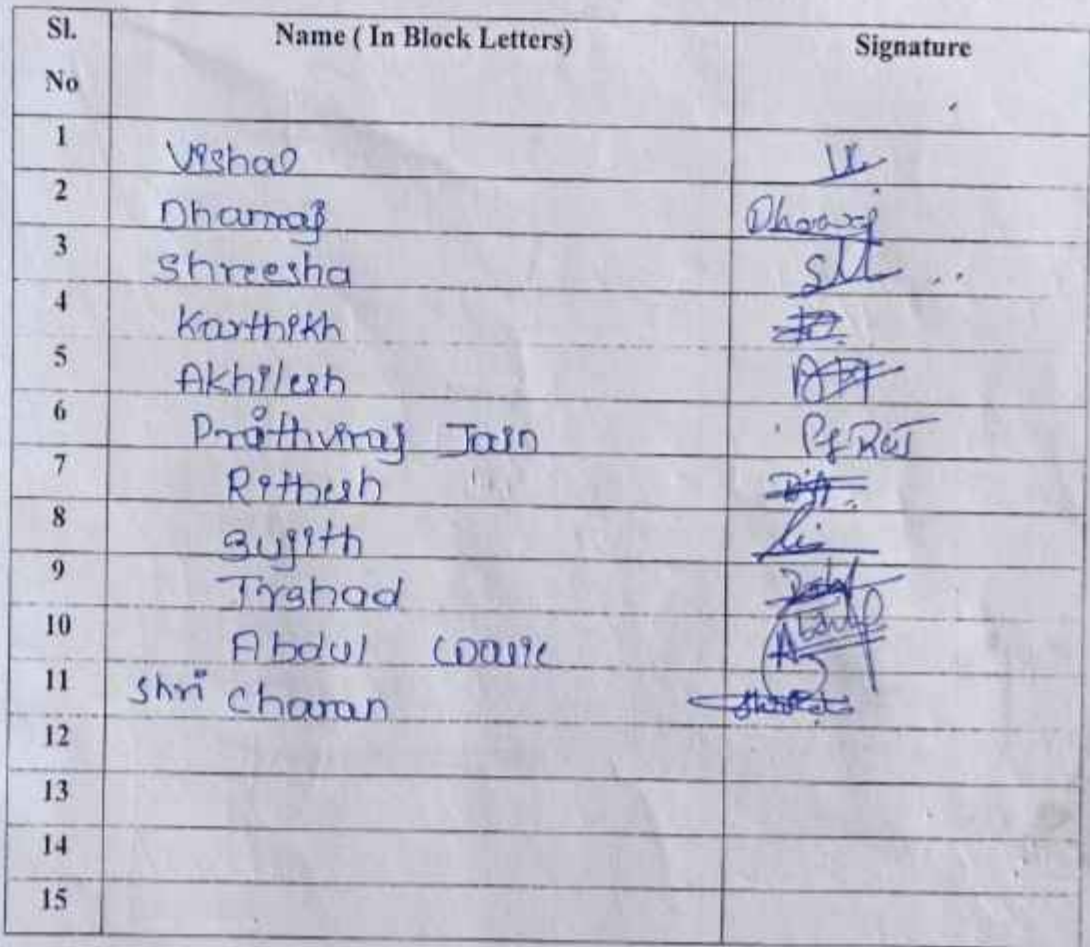 Sl. No Name ( In Block Letters) Signature
1 Vishal
2 Dhamraj
3 Shreesha
4 Karthikh
5 Akhilesh
6 Prathviraj Jain
7 Rithesh
8 Sujith
9 Irshad
10 Abdul Abdul
11 Shri Charan
12
13
14
15